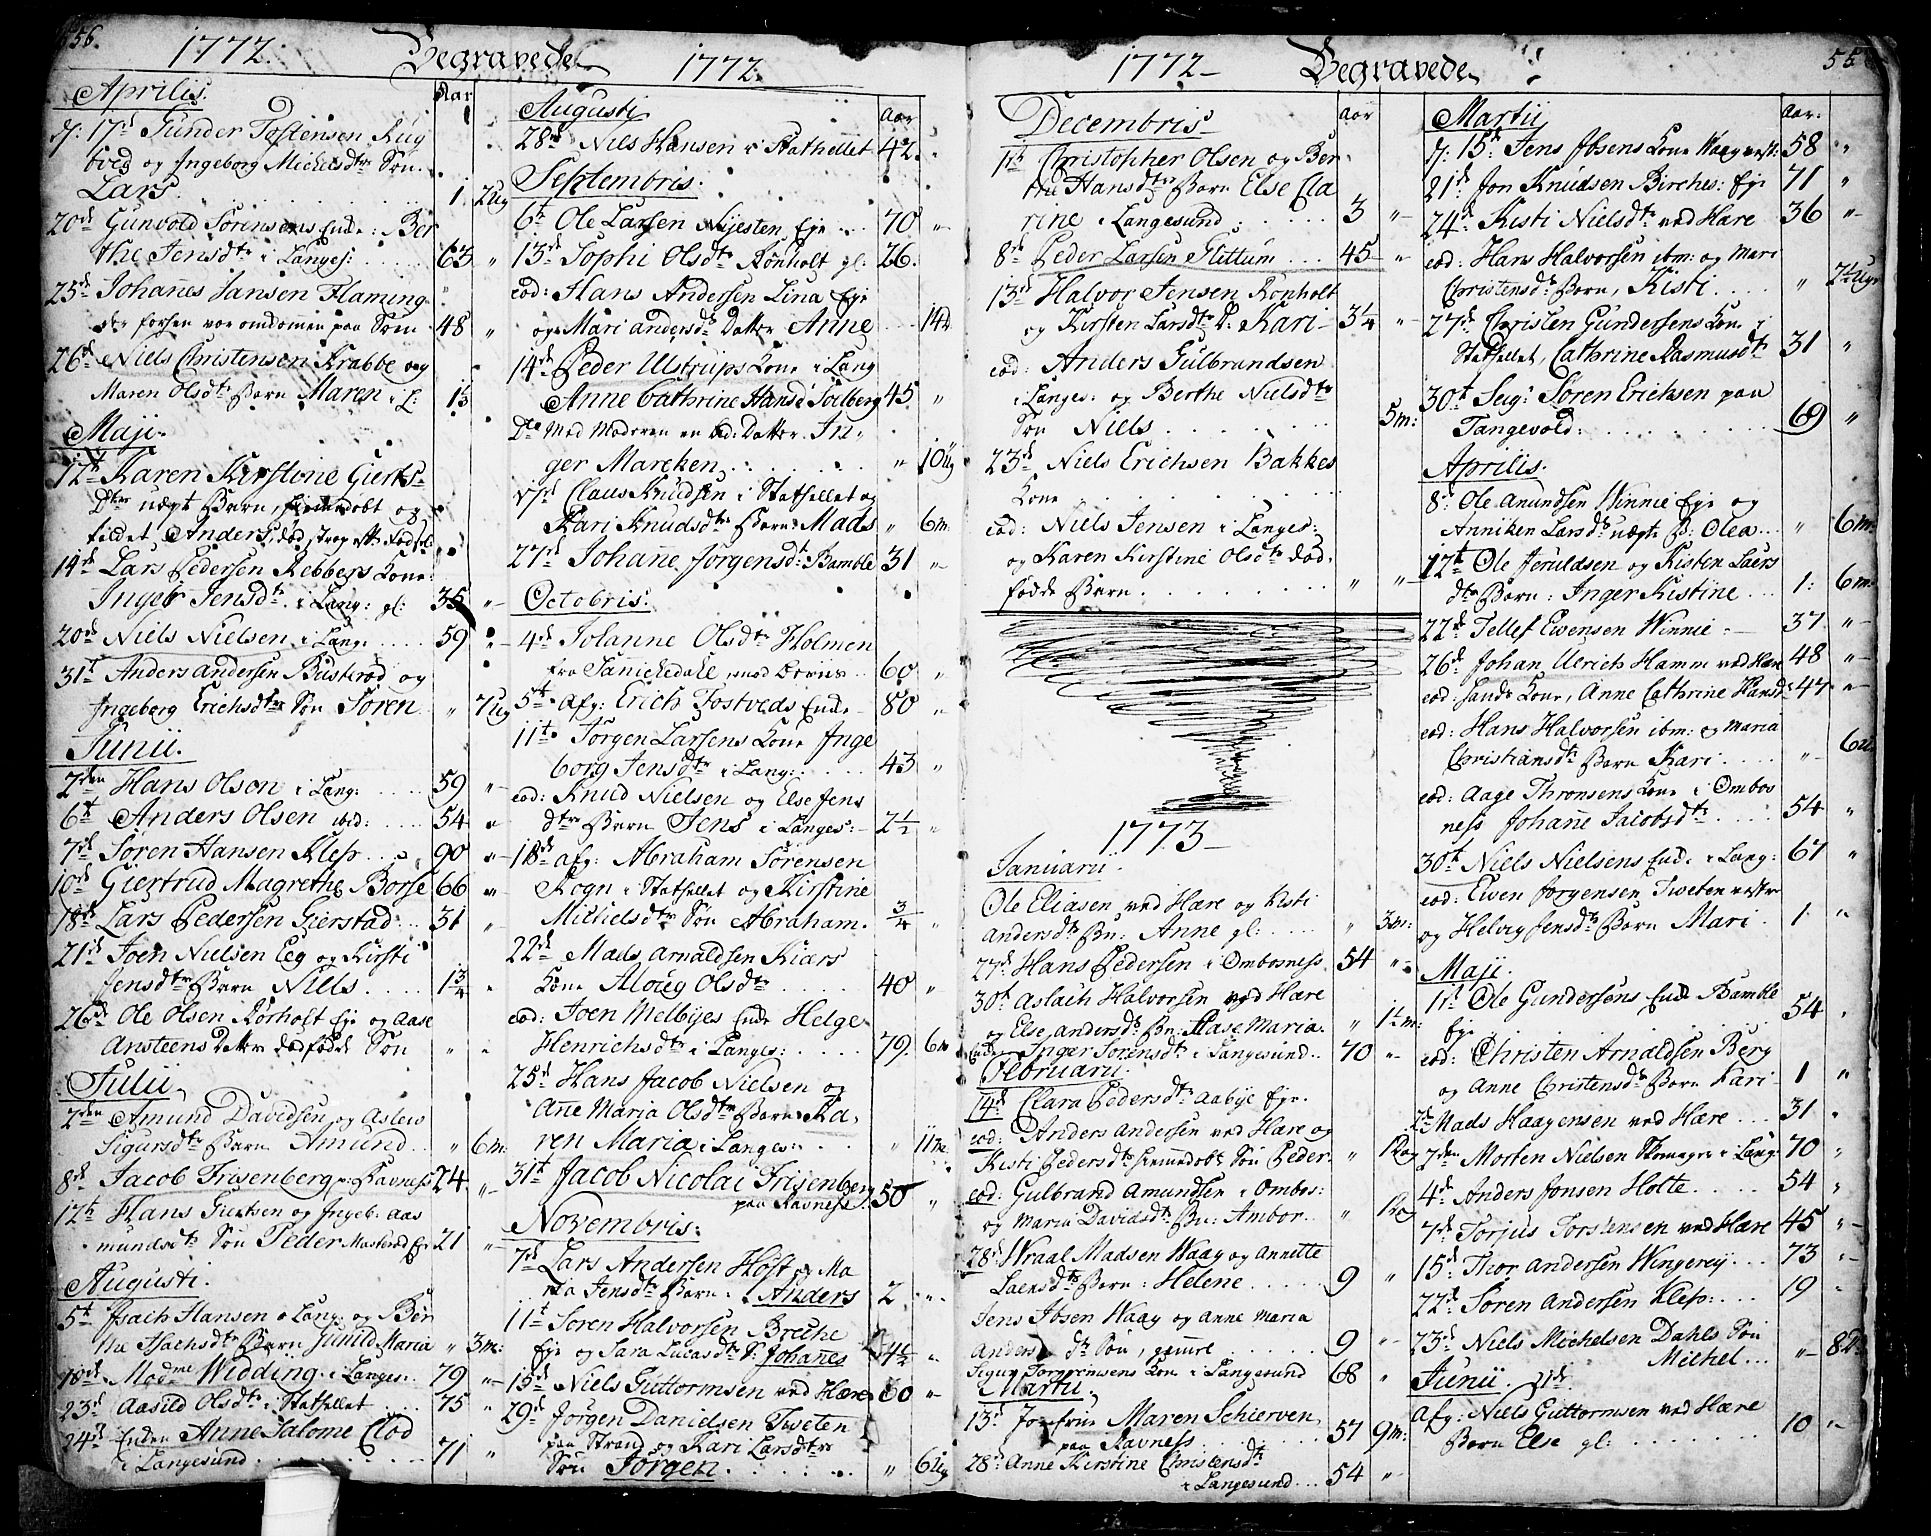 456.
1772. Begravede 1772.
Aprilis. Aar
d: 17d Gunder Tostensen Rug
tved og Ingeborg Michelsdtr Søn
Lars 1. 2 Ug
20d Gunvold Sørensens Enke: Ber
the Jensdtr i Langes: 63 "
25d Johanes Jansen Flaming
48 "
26d Niels Christensen Krabbe og
Maren Olsdtr Barn Maren i L: 1½
Maji.
12t Karen Kirstine Gierts
Dtrs uægt Barn, hiemedøbt og
kaldet Anders, død strax efter Fødsel
14d Lars Pedersen Rebbers Kone
Ingebr Jensdtr i Lang: gl: 35 "
20d Niels Nielsen i Lang: 59 "
31t Anders Andersen Busterød og
Ingeborg Erichsdtr Søn Søren " 7 Ug
Junii.
2den Hans Olson i Lang: 59 "
6t Anders Olsen ibid: 54 "
7d Søren Hansen Klep 90 "
10d Giertrud Magrethe Borse 66 "
18d Lars Pedersen Gierstad 31 "
21d Joen Nielsen Eeg og Kirsti
Jensdtr Barn Niels 1¾ "
26d Ole Olsen Rørholt Eje og Aase
Ansteens Datter dødfødde Søn " "
Julii
2den Amund Davidsen og Aslew
Sigursdtr Barn Amund " 6 m:
8d Jacob Frisenberg p: Ravness 24. "
12t Hans Giertsen og Ingeb: Aas
mundsdtr Søn Peder Masterød Eje 21 "
Augusti.
5t Isach Hansen i Lang: og Ber
the Isachsdtr Barn Gunild Maria " 3 m:
18d Madme Widding i Langes: 79 "
23d Aasild Olsdtr i Stathellet 75 "
24d Enken Anne Salome Clod
i Langesund 71 "
Augusti Aar
28d Nils Hansen i Stathellet 42 "
Septembris.
6t Ole Larsen Nyesten Eje 70 "
13d Sophi Olsdtr Rønholt gl: 26.
eod: Hans Andersen Lina Eje
og Mari Andersdtr Datter Anne 14 d
14d Peder Ulstrups Kone i Lang
Anne Cathrine Hansd Solberg 45 "
Do Med Moderen en bd: Datter In
ger Mareken " 10 Ug
17d Claus Knudsen i Stathellet og
Kari Knudsdtr Barn: Mads " 6 m.
27d Johañe Jørgensd: Bamble 31 "
Octobris.
4d Johanne Olsdtr Holmen
60 "
5t Afg: Erich Tostveds Enke 80 "
11t Jørgen Larsens Kone Inge
borg Jensdtr i Lang: 43 "
eod: Knud Nielsen og Else Jens
dtr Barn Jens i Langes: 2½ "
18d afg: Abraham Sørensen
Rogn i Stathellet og Kirstine
Michelsdtr Søn Abraham ¾ "
22d Mads Arnaldsen Kiærs
Kone Aloug Olsdtr 40 "
eod: Joen Melbyes Enke Helge
Henrichsdtr i Langes: 79. 6 m
25d Hans Jacob Nielsen og
Añe Maria Olsdtr Barn: Ka
ren Maria i Langes: " 11 m.
31t Jacob Nicolai Frisenberg
paa Ravness 50 "
Novembris.
7d Lars Andersen Høft og Ma
ria Jensdtr Barn: Anders 2 "
11t Søren Halvorsen Brecke
Eje og Sara Lucasdtr S: Johañes 4½ "
15d Niels Guttormsen ved Hære 60 "
29d Jørgen Danielsen Tweten
paa Strand og Kari Larsdtr
Søn Jørgen " 6 Ug
1772 Begravede
Decembris Aar
1t Christopher Olsen og Ber
the Hansdtr Barn Else Cla
rine i Langesund 3 "
8d Peder Larsen Flittum 45 "
13d Halvor Jensen Rønholt
og Kirsten Larsdtr D: Kari 3¼ "
eod: Anders Gulbrandsen
i Langes: og Berthe Nielsdtr
Søn Niels 5 m:
23d Niels Erichsen Bakkes
Kone
eod: Niels Jensen i Langes:
og Karen Kirstine Olsdtr død
fødde Barn " "
1773
Januarii.
Ole Eliasen ved Hære og Kisti
Andersdtr Bn: Anne gl: " 3 m:
27d Hans Pedersen i Ombosness 54 "
30t Aslach Halvorsen ved Hære
og Else Andersdtr Bn: Aase Maria " 1½ m:
Enke Inger Sørensdtr i Langesund 70 "
Februarii.
14d Clara Pedersdtr Aabye Eje
eod: Anders Andersen ved Hære og
Kisti Pedersdtr hiemmedøbt Søn Peder "
eod: Gulbrand Amundsen i Ombos:
og Maria Davidsdtr Bn: Ambor "
28d Wraal Madsen Waag og Annette
Laersdtr Barn: Helene 9 "
Jens Ibsen Waag og Anne Maria
Andersdtr Søn, 9 "
Kone i Langesund 68 "
Martii
13d Jomfrue Maren Schierven
paa Ravness 57 9 m:
28d Anne Kirstine Christensdtr
i Langesund 54 "
Martii Aar:
d: 15d Jens Ibsens Kone Waag vest: 58 "
21d Jon Knudsen Birches: Eje 71 "
24d Kisti Nielsdtr ved Hære 36 "
eod: Hans Halvorsen ibm: og Mari
Christensdtr Barn, Kisti " 2½ Ugr
27d Christen Gundersens Kone i
Stathellet, Cathrine Rasmusdtr 31 "
30t Sugr Søren Erichsen paa
Tangevold: 69 "
Aprilis.
8d: Ole Anundsen Winnie Eje og
Anniken Larsdtr uægte B: Olea " 6 m:
12t Ole Jeruldsen og Kisten Laers
dtr Barn: Inger Kistine 1: 6 m:
22d Tellef Ewensen Winnie 37. "
26d Johan Ulrich Hamm ved Hære 48 "
eod: Kone, Anne Cathrine Hansdtr 47 "
eod: Hans Halvorsen ibm: og Maria
Christiansdtr Barn Kari " 6 u
eod: Aage Thronsens Kone i Ombos
ness Johañe Jacobsdtr 54 "
30t Niels Nielsens Enke i Lang: 67 "
eod: Ewen Jørgensen Tweten vestre
og Helvig Jensdtr Barn Mari 1 "
Maji.
1t Ole Gundersens Enke Bamble
Eje 54 "
eod: Christen Arnaldsen Berg
og Anne Christensdtr Barn Kari 1 "
2d Mads Haagensen ved Hære 31 "
2den Morten Nielsen Skomager i Lang: 70 "
4d Anders Jonsen Holte 54 "
7d Torjus Torstensen ved Hære 45 "
15d Thor Andersen Wingerey 73 "
22d Søren Andersen Klep 19 "
23d Niels Michelsen Dahls Søn
Michel " 8 D.
Junii. 11d
Afg: Niels Guttormsen ved Hære
Barn Else gl: 10 "